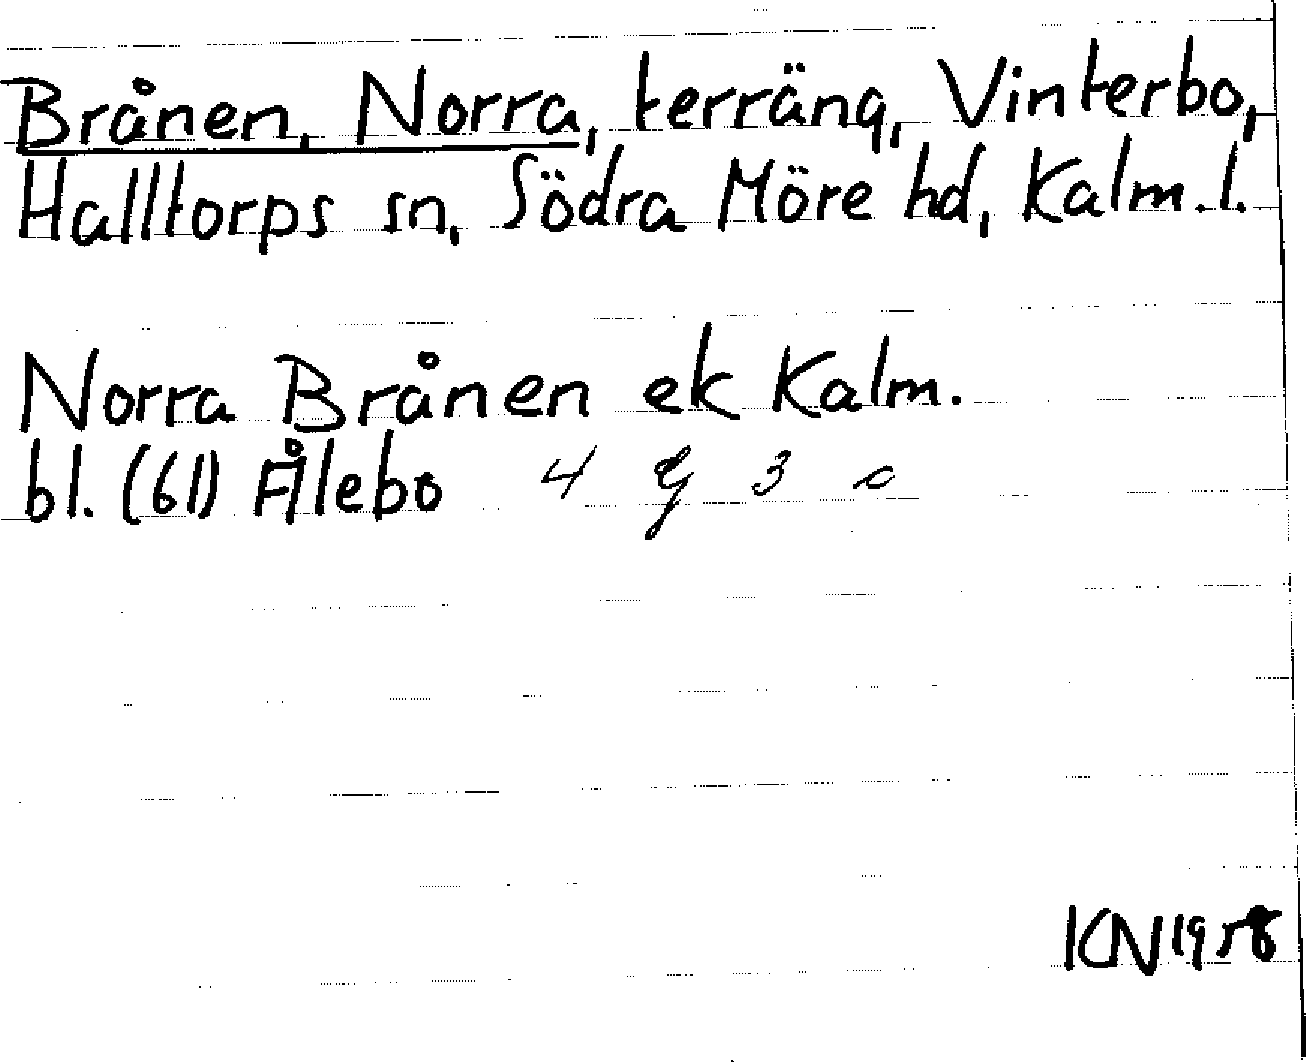 Brånen, Norra, terräng, Vinterbo,
Halltorps sn, Södra Möre hd, Kalm. l.
Norra Brånen ek Kalm.
bl. (61) Ålebo 4 G 3 c
KN 1958